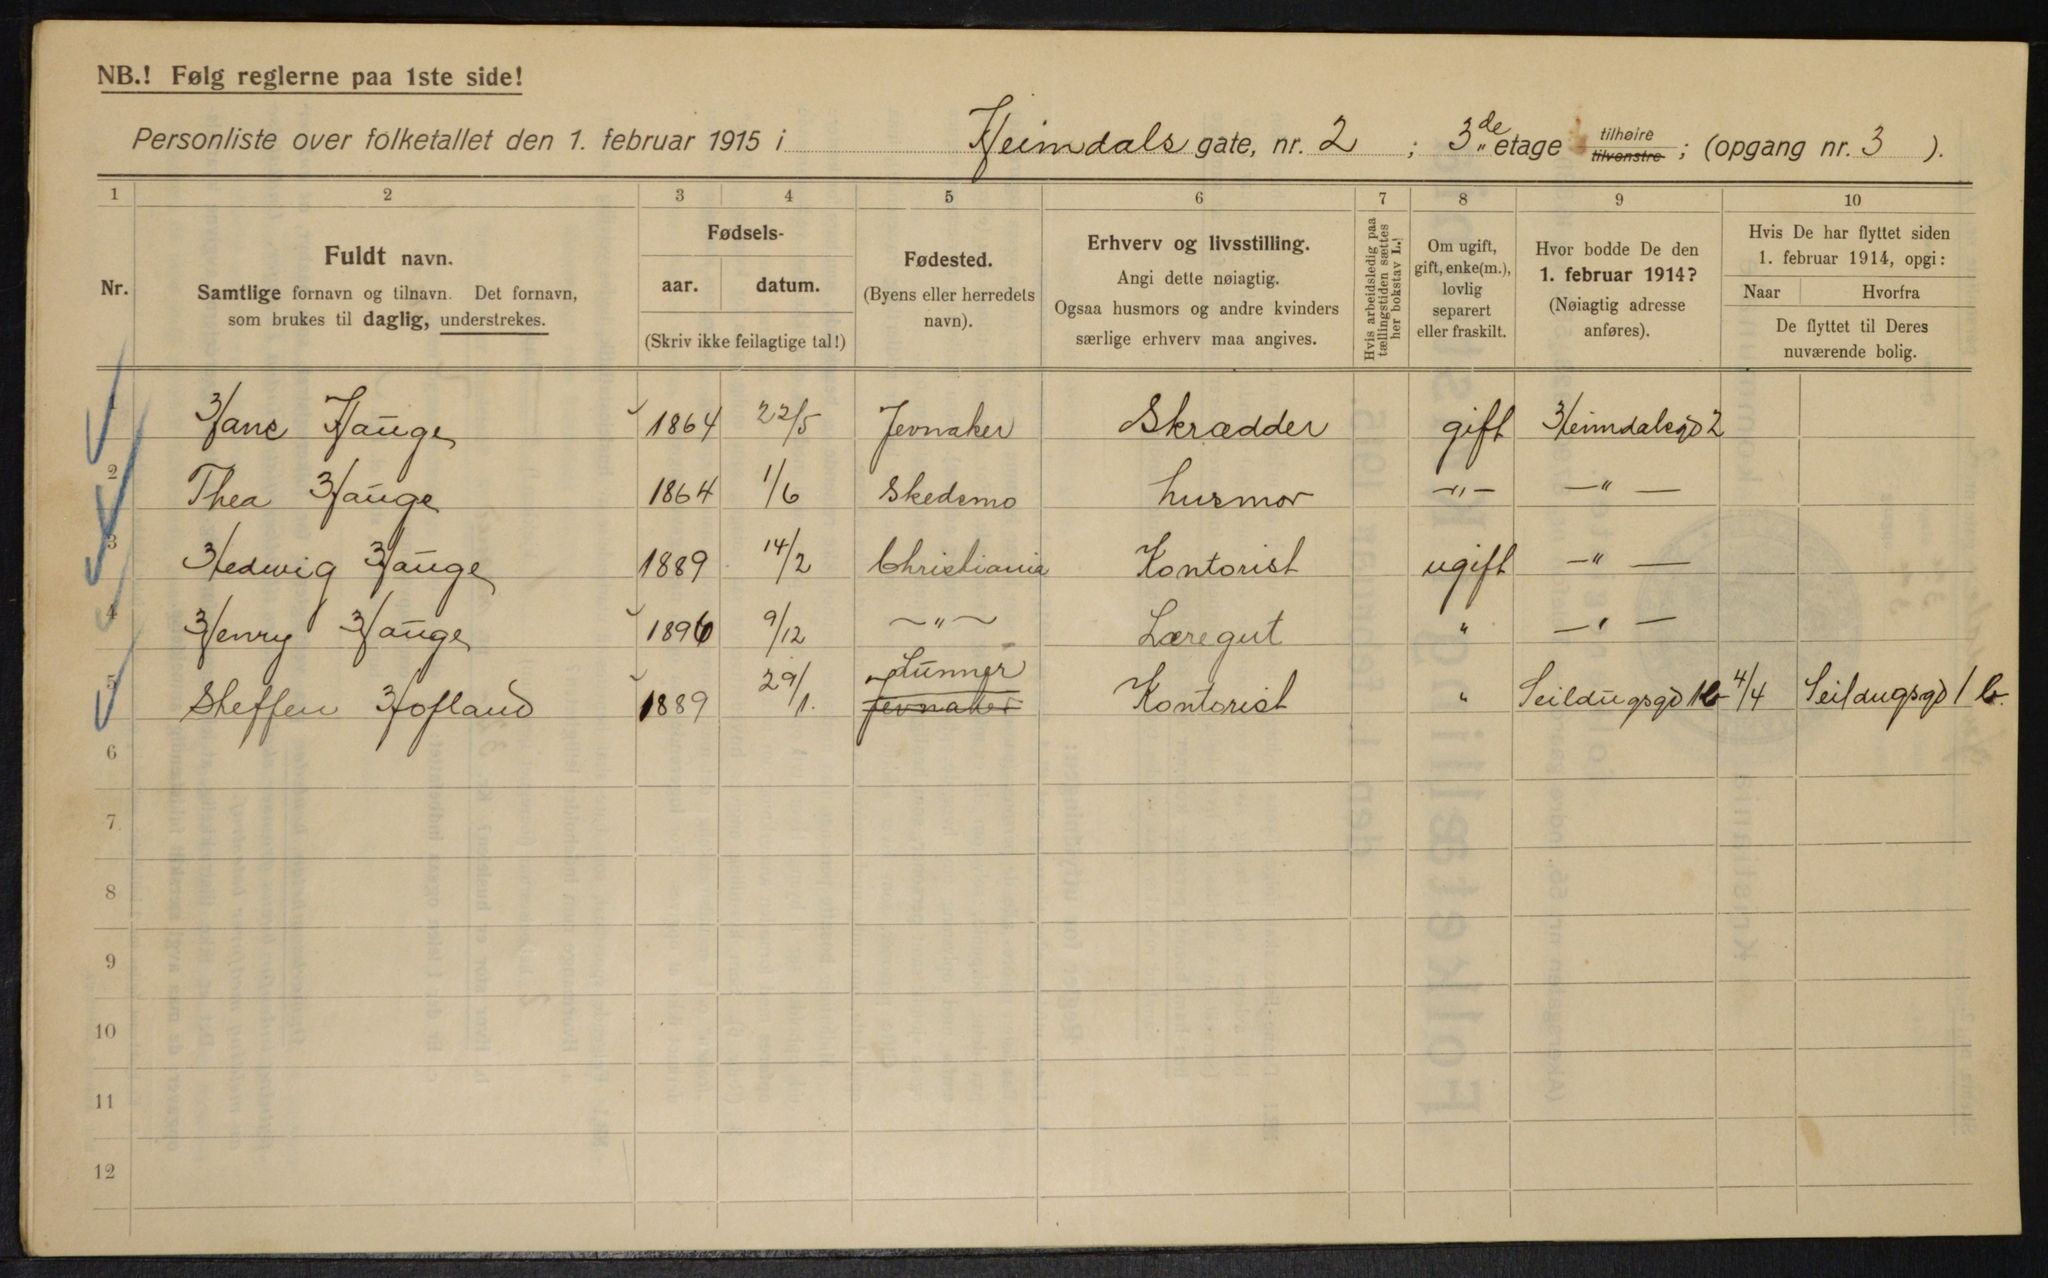 NB.! Følg reglerne paa 1ste side!
Personliste over folketallet den 1. februar 1915 i Heimdals gate, nr. 2 ; 3de etage tilhøire tilvenstre ; (opgang nr. 3 ).
1 2 3 4 5 6 7 8 9 10
Nr.
Fuldt navn.
Samtlige fornavn og tilnavn. Det fornavn,
som brukes til daglig, understrekes.
Fødsels-
aar. datum.
(Skriv ikke feilagtige tal!)
Fødested.
(Byens eller herredets
navn).
Erhverv og livsstilling.
Angi dette nøiagtig.
Ogsaa husmors og andre kvinders
særlige erhverv maa angives.
Hvis arbeidsledig paa
tællingstiden sættes
her bokstav L.!
Om ugift,
gift, enke(m.),
lovlig
separert
eller fraskilt.
Hvor bodde De den
1. februar 1914?
(Nøiagtig adresse
anføres).
Hvis De har flyttet siden
1. februar 1914, opgi:
Naar Hvorfra
De flyttet til Deres
nuværende bolig.
1 Hans Hauge 1864 22/5 Jevnaker Skrædder gift Heimdalsgd 2
2 Thea Hauge 1864 1/6 Skedsmo husmor —"— —"—
3 Hedwig Hauge 1889 14/2 Christiania Kontorist ugift —"—
4 Henry Hauge 1896 9/12 —"— Læregut " —"—
5 Steffen Hofland 1889 29/1. Lunner Jevnaker Kontorist " Seildugsgd 1b 4/4 Seildugsgd 1 b.
6
7
8
9
10
11
12